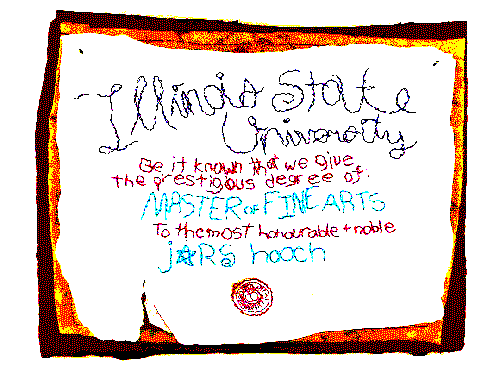 Illinois State
University
Be it known that we give
the prestigious degree of:
MASTER OF FINE ARTS
To the most honourable + noble
jARS hooch